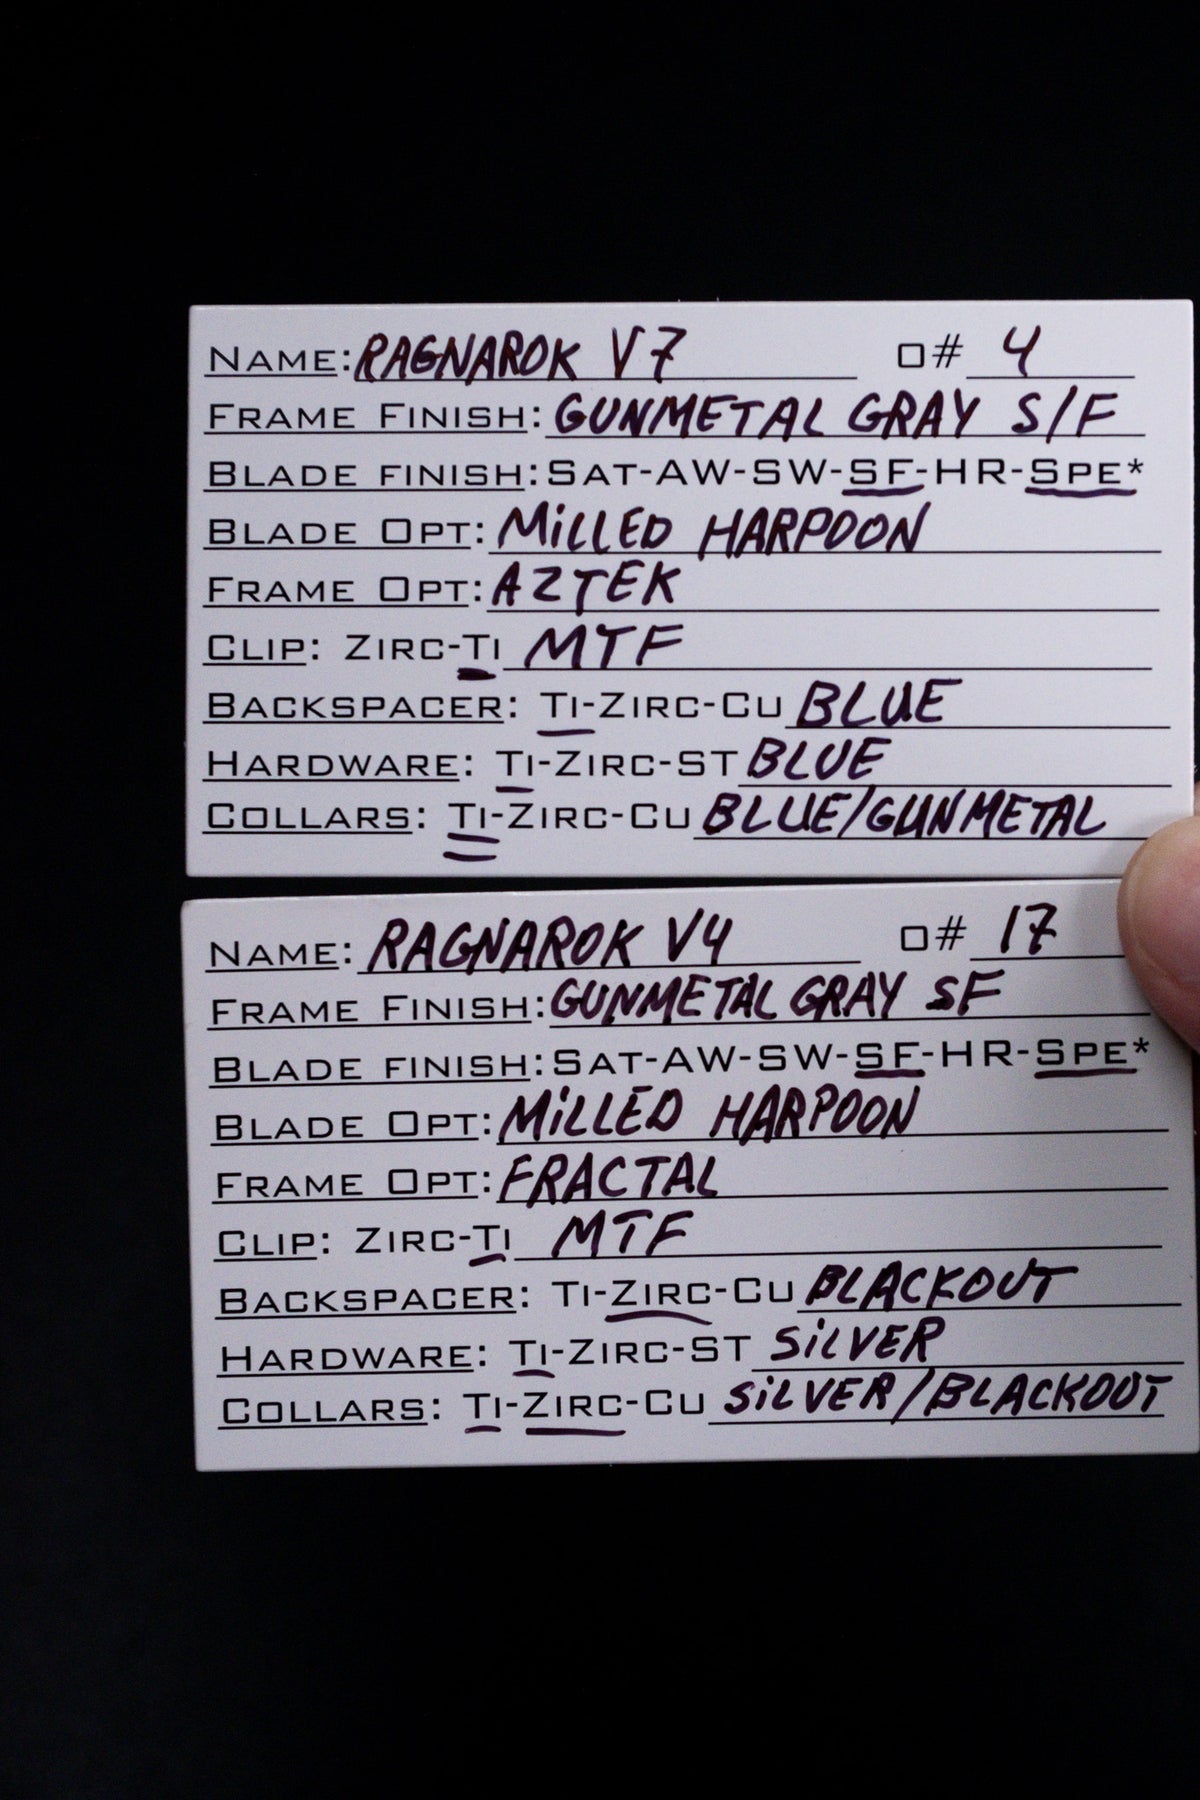 NAME: RAGNAROK V7 O# 4
FRAME FINISH: GUNMETAL GRAY S/F
BLADE FINISH: SAT-AW-SW-SF-HR-SPE*
BLADE OPT: MiLLED HARPOON
FRAME OPT: AZTEK
CLIP: ZIRC-TI MTF
BACKSPACER: TI-ZIRC-CU BLUE
HARDWARE: TI-ZIRC-ST BLUE
COLLARS: TI-ZIRC-CU BLUE/GUNMETAL
NAME: RAGNAROK V4 O# 17
FRAME FINISH: GUNMETAL GRAY SF
BLADE FINISH: SAT-AW-SW-SF-HR-SPE*
BLADE OPT: MiLLED HARPOON
FRAME OPT: FRACTAL
CLIP: ZIRC-TI MTF
BACKSPACER: TI-ZIRC-CU BLACKOUT
HARDWARE: TI-ZIRC-ST SiLVER
COLLARS: TI-ZIRC-CU SiLVER/BLACKOUT